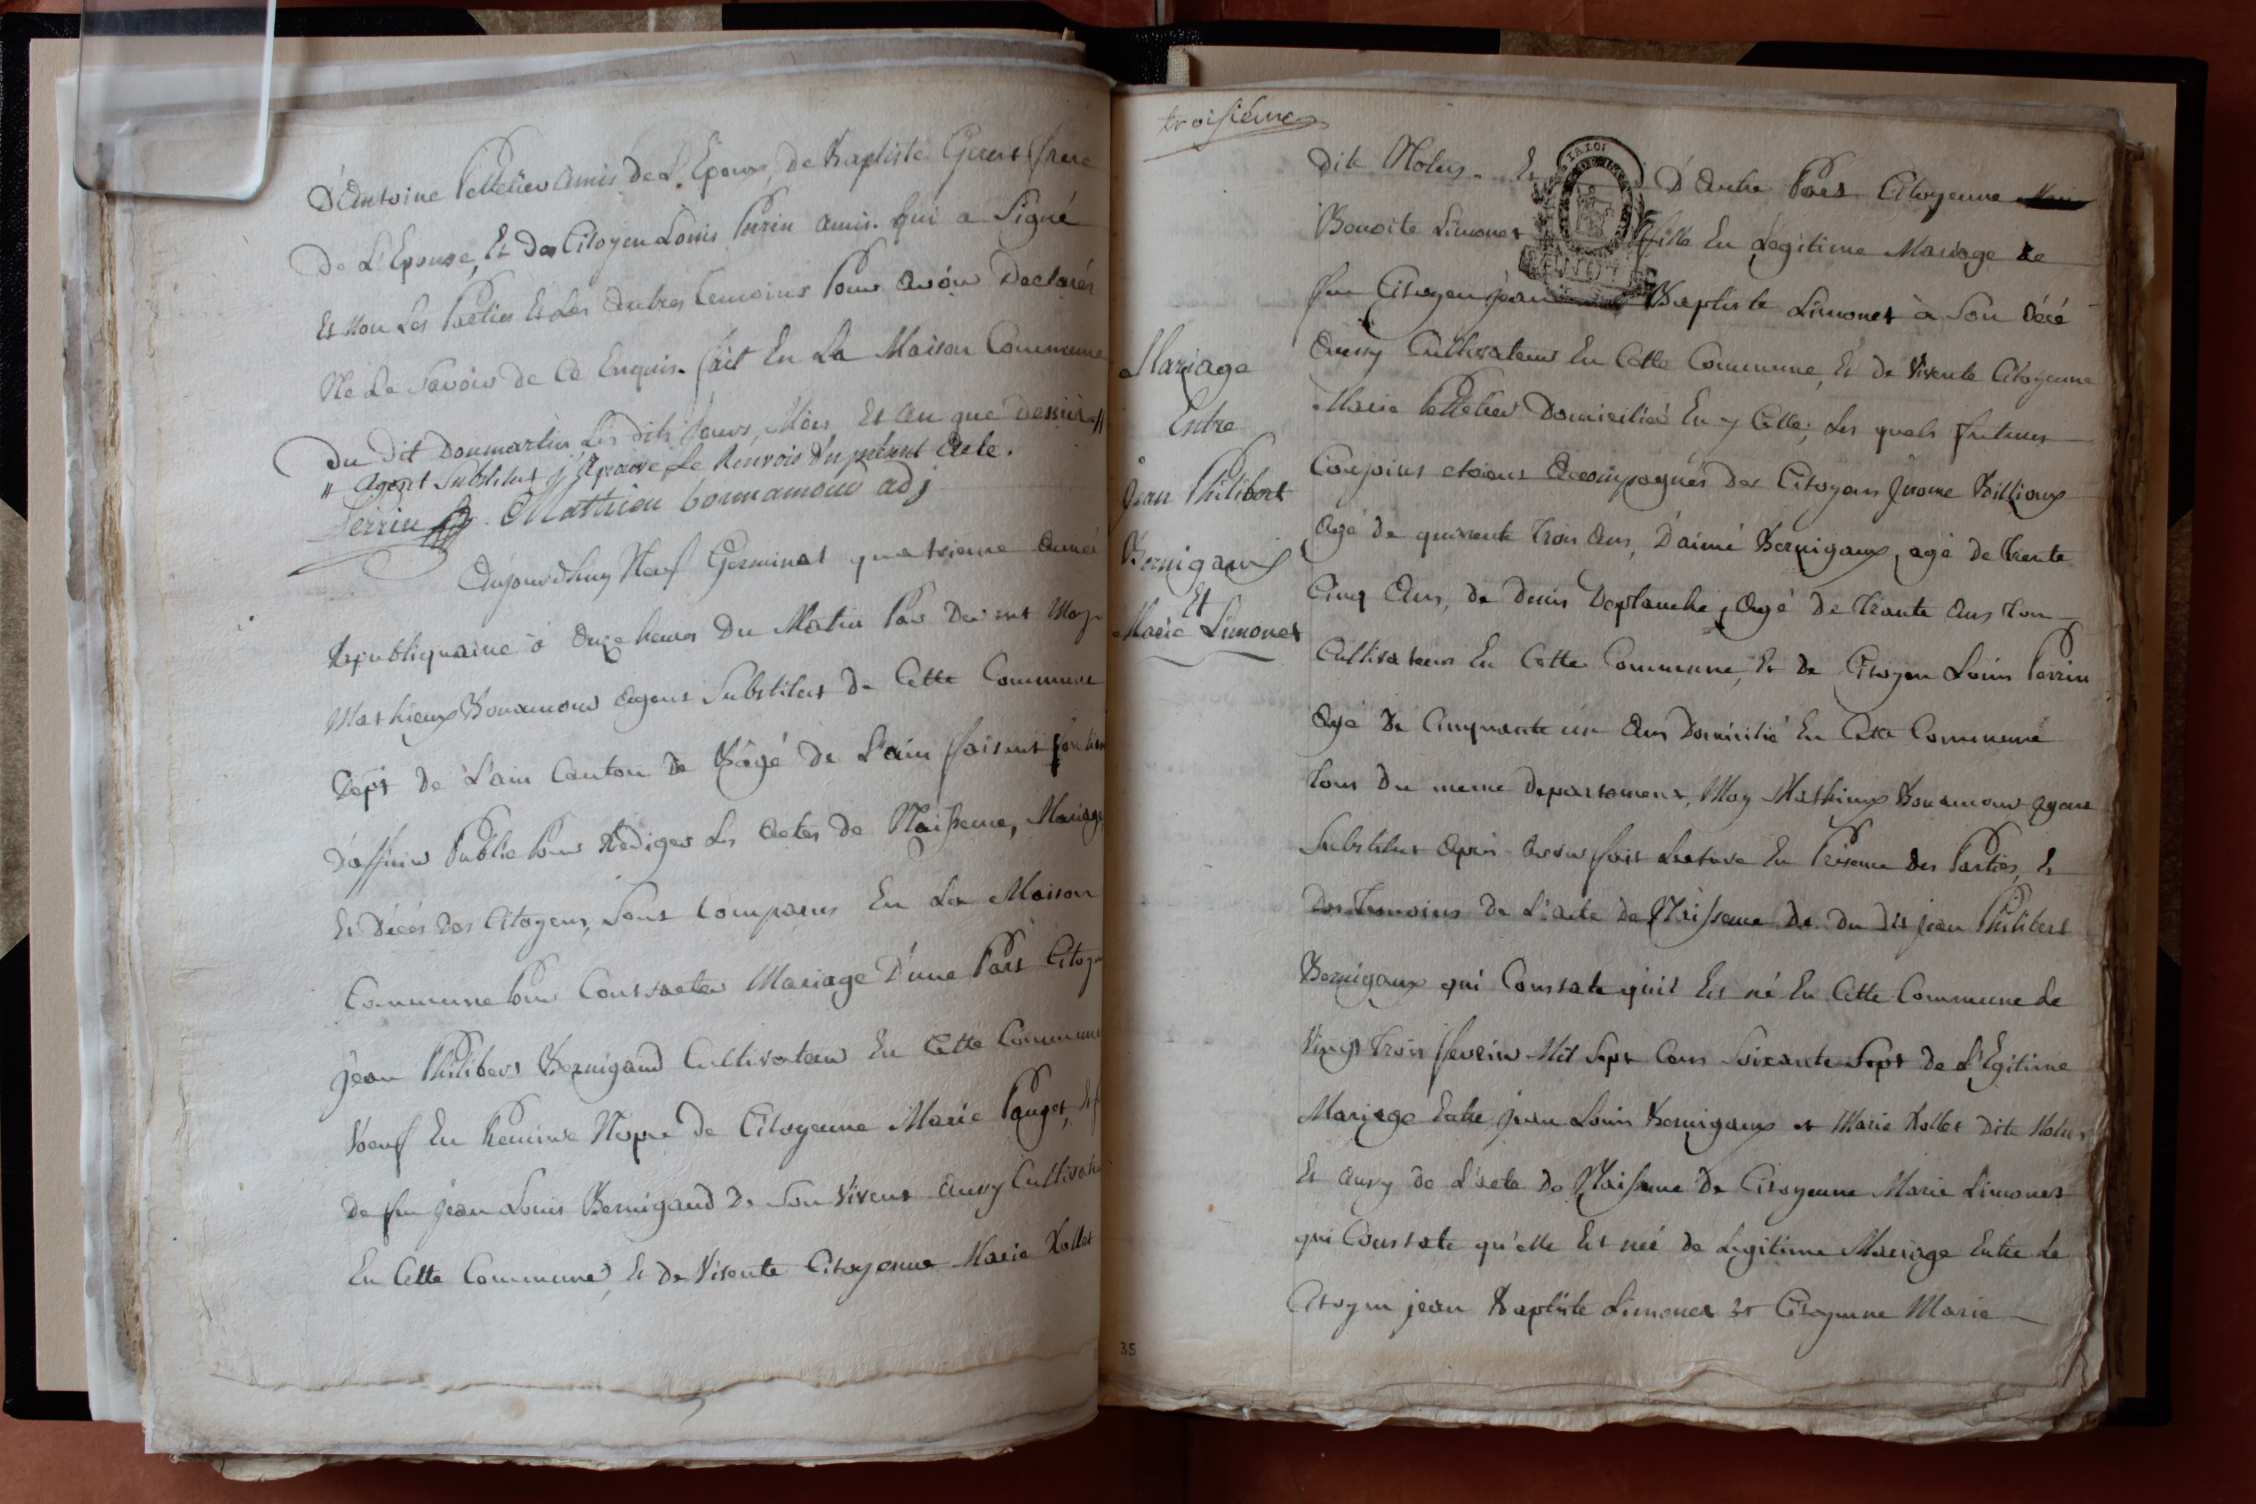 D'Antoine Pelletier amis de L'Epoux, de Baptiste Gerent frere
De L'Epouse, Et des Citoyen Louis Perrin amis. qui a Signé
Et Non Les Parties Et Les Autres temoins Pour avoir Declarés
Ne Le Savoir de Ce Enquis. fait En La Maison Commune
Du Dit Donmartin Les dits Jours, Mois, Et An que Dessus //
// agent Substitut J'Aprouve Le Renvois du présent Acte.
Perrin Mathieu bonnamour adj
Aujourd'huy Neuf Germinal quatrieme année
Republiquaine à Onze heures Du Matin Par Devent Moy
Mathieux Bonamour agent Substitut De Cette Commune
Dept De L'ain Canton De Bâgé De L'ain faisent fonction
d'officier Public Pour Rediger Les Actes de Naissence, Mariage
Et Décés Des Citoyens, Sont Comparus En La Maison
Commune Pour Contracter Mariage D'une Part Citoyen
jean Philibert Bernigaud Cultivateur En Cette Commune
Voeuf En Premiere Nopce de Citoyenne Marie Pauget,
de feu jean Louis Bernigaud de Son Vivent aussy Cultivateur
En Cette Commune, Et De Vivente Citoyenne Marie Rollet
troisième
Mariage
Entre
Jean Philibert
Bernigaux
Et
Marie Limonet
dite Nolus. Et D'Autre Part Citoyenne
Benoite Limonet fille En Légitime Mariage de
feu Citoyen jean Baptiste Limonet à Son Décé
Aussy Cultivateur En Cette Commune, Et de Vivente Citoyenne
Marie Pelletier Domiciliée En y Celle; Les quels futeurs
Conjoins etoient Accompagnés des Citoyens Jerome Billioux
Agé De quarente Trois Ans, D'aimé Bernigaux, agé De Trente
Cinq Ans, De Denis Deplanche, Agé De Trante Ans Tous
Cultivateurs En Cette Commune, Et De Citoyen Louis Perrin
Agé De Cinquante un Ans Domicilié En Cette Commune
Tous Du meme Departement, Moy Mathieux Bonamour Agent
Substitut Apres Avoir fait Lecture En Présence Des Parties, Et
Des Temoins De L'acte de Naissence De Du Dit jean Philibert
Bernigaux qui Constate qu'il Est né En Cette Commune Le
Vingt Trois fevrier Mil Sept Cens Soixante Sept De L'Egitime
Mariage Entre jean Louis Bernigaux et Marie Rollet Dite Nolus
Et Aussy de L'acte De Naissence De Citoyenne Marie Limonet
qui Constate qu'elle Est née de Legitime Mariage Entre Le
Citoyen jean Baptiste Limonet Et Citoyenne Marie
35